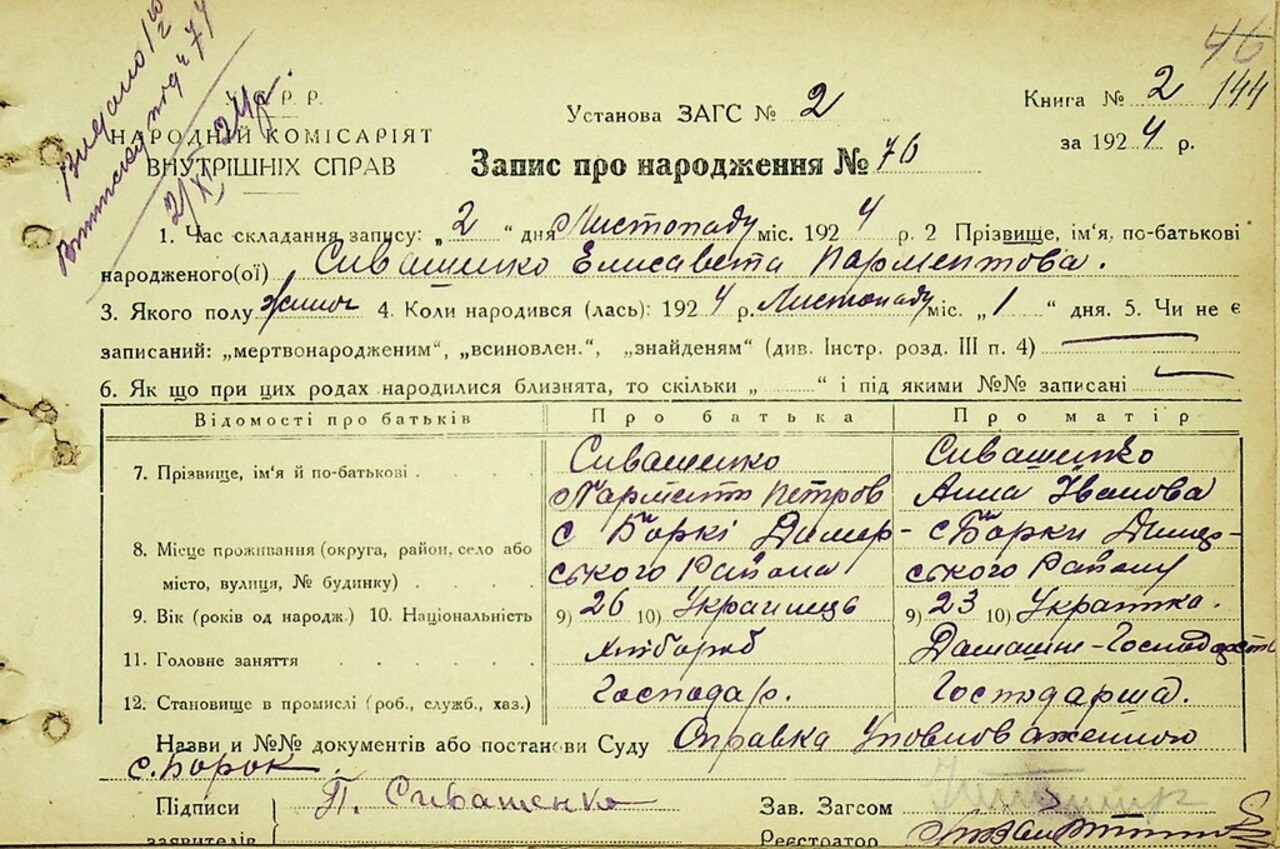 Видано
У. Р. Р.
НАРОДНІЙ КОМІСАРІЯТ
ВНУТРІШНІХ СПРАВ
2/XI 24р.
Установа ЗАГС № 2
Запис про народження № 76
46
Книга № 2 144
за 1924 р.
1. Час складання запису: „2“ дня Листопаду міс. 1924 р. 2 Прізвище, ім'я, по-батькові
народженого(ої) Сивашенко Елисавета Парментова.
3. Якого полу жіноч 4. Коли народився (лась): 1924 р. Листопаду міс. „1“ дня. 5. Чи не є
записаний: „мертвонародженим“, „всиновлен.“, „знайденям“ (див. Інстр. розд. III п. 4)
6. Як що при цих родах народилися близнята, то скільки „ “ і під якими №№ записані
Відомості про батьків Про батька Про матір
7. Прізвище, ім'я й по-батькові Сивашенко Сивашенко
Пармент Петров Анна Іванова
8. Місце проживання (округа, район, село або с Боркі Димер- с Борки Димер-
місто, вулиця, № будинку) ського Района ського Району
9. Вік (років од народж.) 10. Національність 9) 26 10) Украинець 9) 23 10) Украінка.
11. Головне заняття Хлібороб Домашнє-Господарство
12. Становище в промислі (роб., служб., хаз.) Господар. Господарша.
Назви и №№ документів або постанови Суду Справка Уповноваженного
с. Борок
Підписи П. Сивашенко Зав. Загсом
заявителів Реєстратор